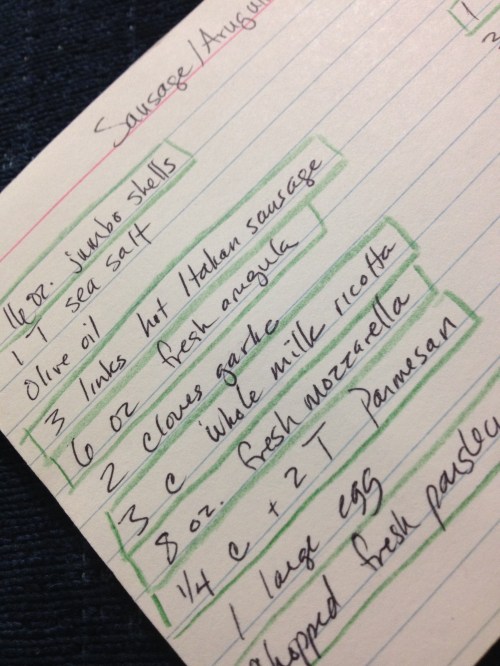 Sausage/Arugul
16 oz. jumbo shells
1 T sea salt
Olive oil
3 links hot Italian sausage
6 oz fresh arugula
2 cloves garlic
3 c whole milk ricotta
8 oz. fresh mozzarella
1/4 c + 2 T Parmesan
1 large egg
chopped fresh parsley
1
3